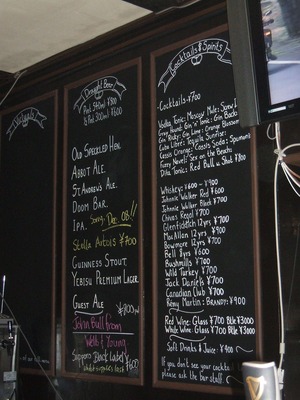 Draught Beer
Pint 540ml ¥800
½ Pint 300ml ¥600
Old Speckled Hen.
Abbot Ale.
St Andrews Ale.
Doom Bar.
I.P.A.
Stella Artois ¥900
Guinness Stout.
Yebisu Premium Lager.
Guest Ale
¥900
John Bull from
Wells & Young
Sapporo Black Label
¥600
Cocktails & Spirits
-Cocktails-¥700
Vodka Tonic: Moscow Mule:
Grey Hound: Gin 'n' Tonic: Gin Buck:
Gin Ricky: Gin Lime: Orange Blossom
Cuba Libre: Tequila Sunrise:
Cassis Orange: Cassis Soda: Spumoni
Fuzzy Navel: Sex on the Beach:
Dita Tonic: Red Bull n' Shot ¥800
Whiskey: ¥600 - ¥900
Johnnie Walker Red ¥600
Johnnie Walker Black ¥700
Chivas Regal ¥700
Glenfiddich 12yrs ¥700
MacAllan 12yrs ¥900
Bowmore 12yrs ¥700
Bell 8yrs ¥600
Bushmills ¥700
Wild Turkey ¥700
Jack Daniel's ¥700
Canadian Club ¥700
Remy Martin: Brandy: ¥900
Red Wine Glass ¥700 Btle ¥3000
White Wine Glass ¥700 Btle ¥3000
Soft Drinks & Juice: ¥400
If you don't see your cockta
please ask the bar staff.